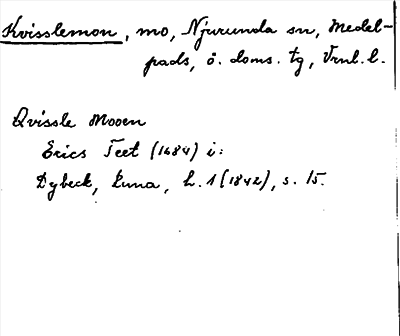 Kvisslemon, mo, Njurunda sn, Medel-
pads, ö. doms. tg, Vrnl. l.
Qvissle Mooen
Erics Teet (1684) i:
Dybeck, Runa, h. 1 (1842), s. 15.